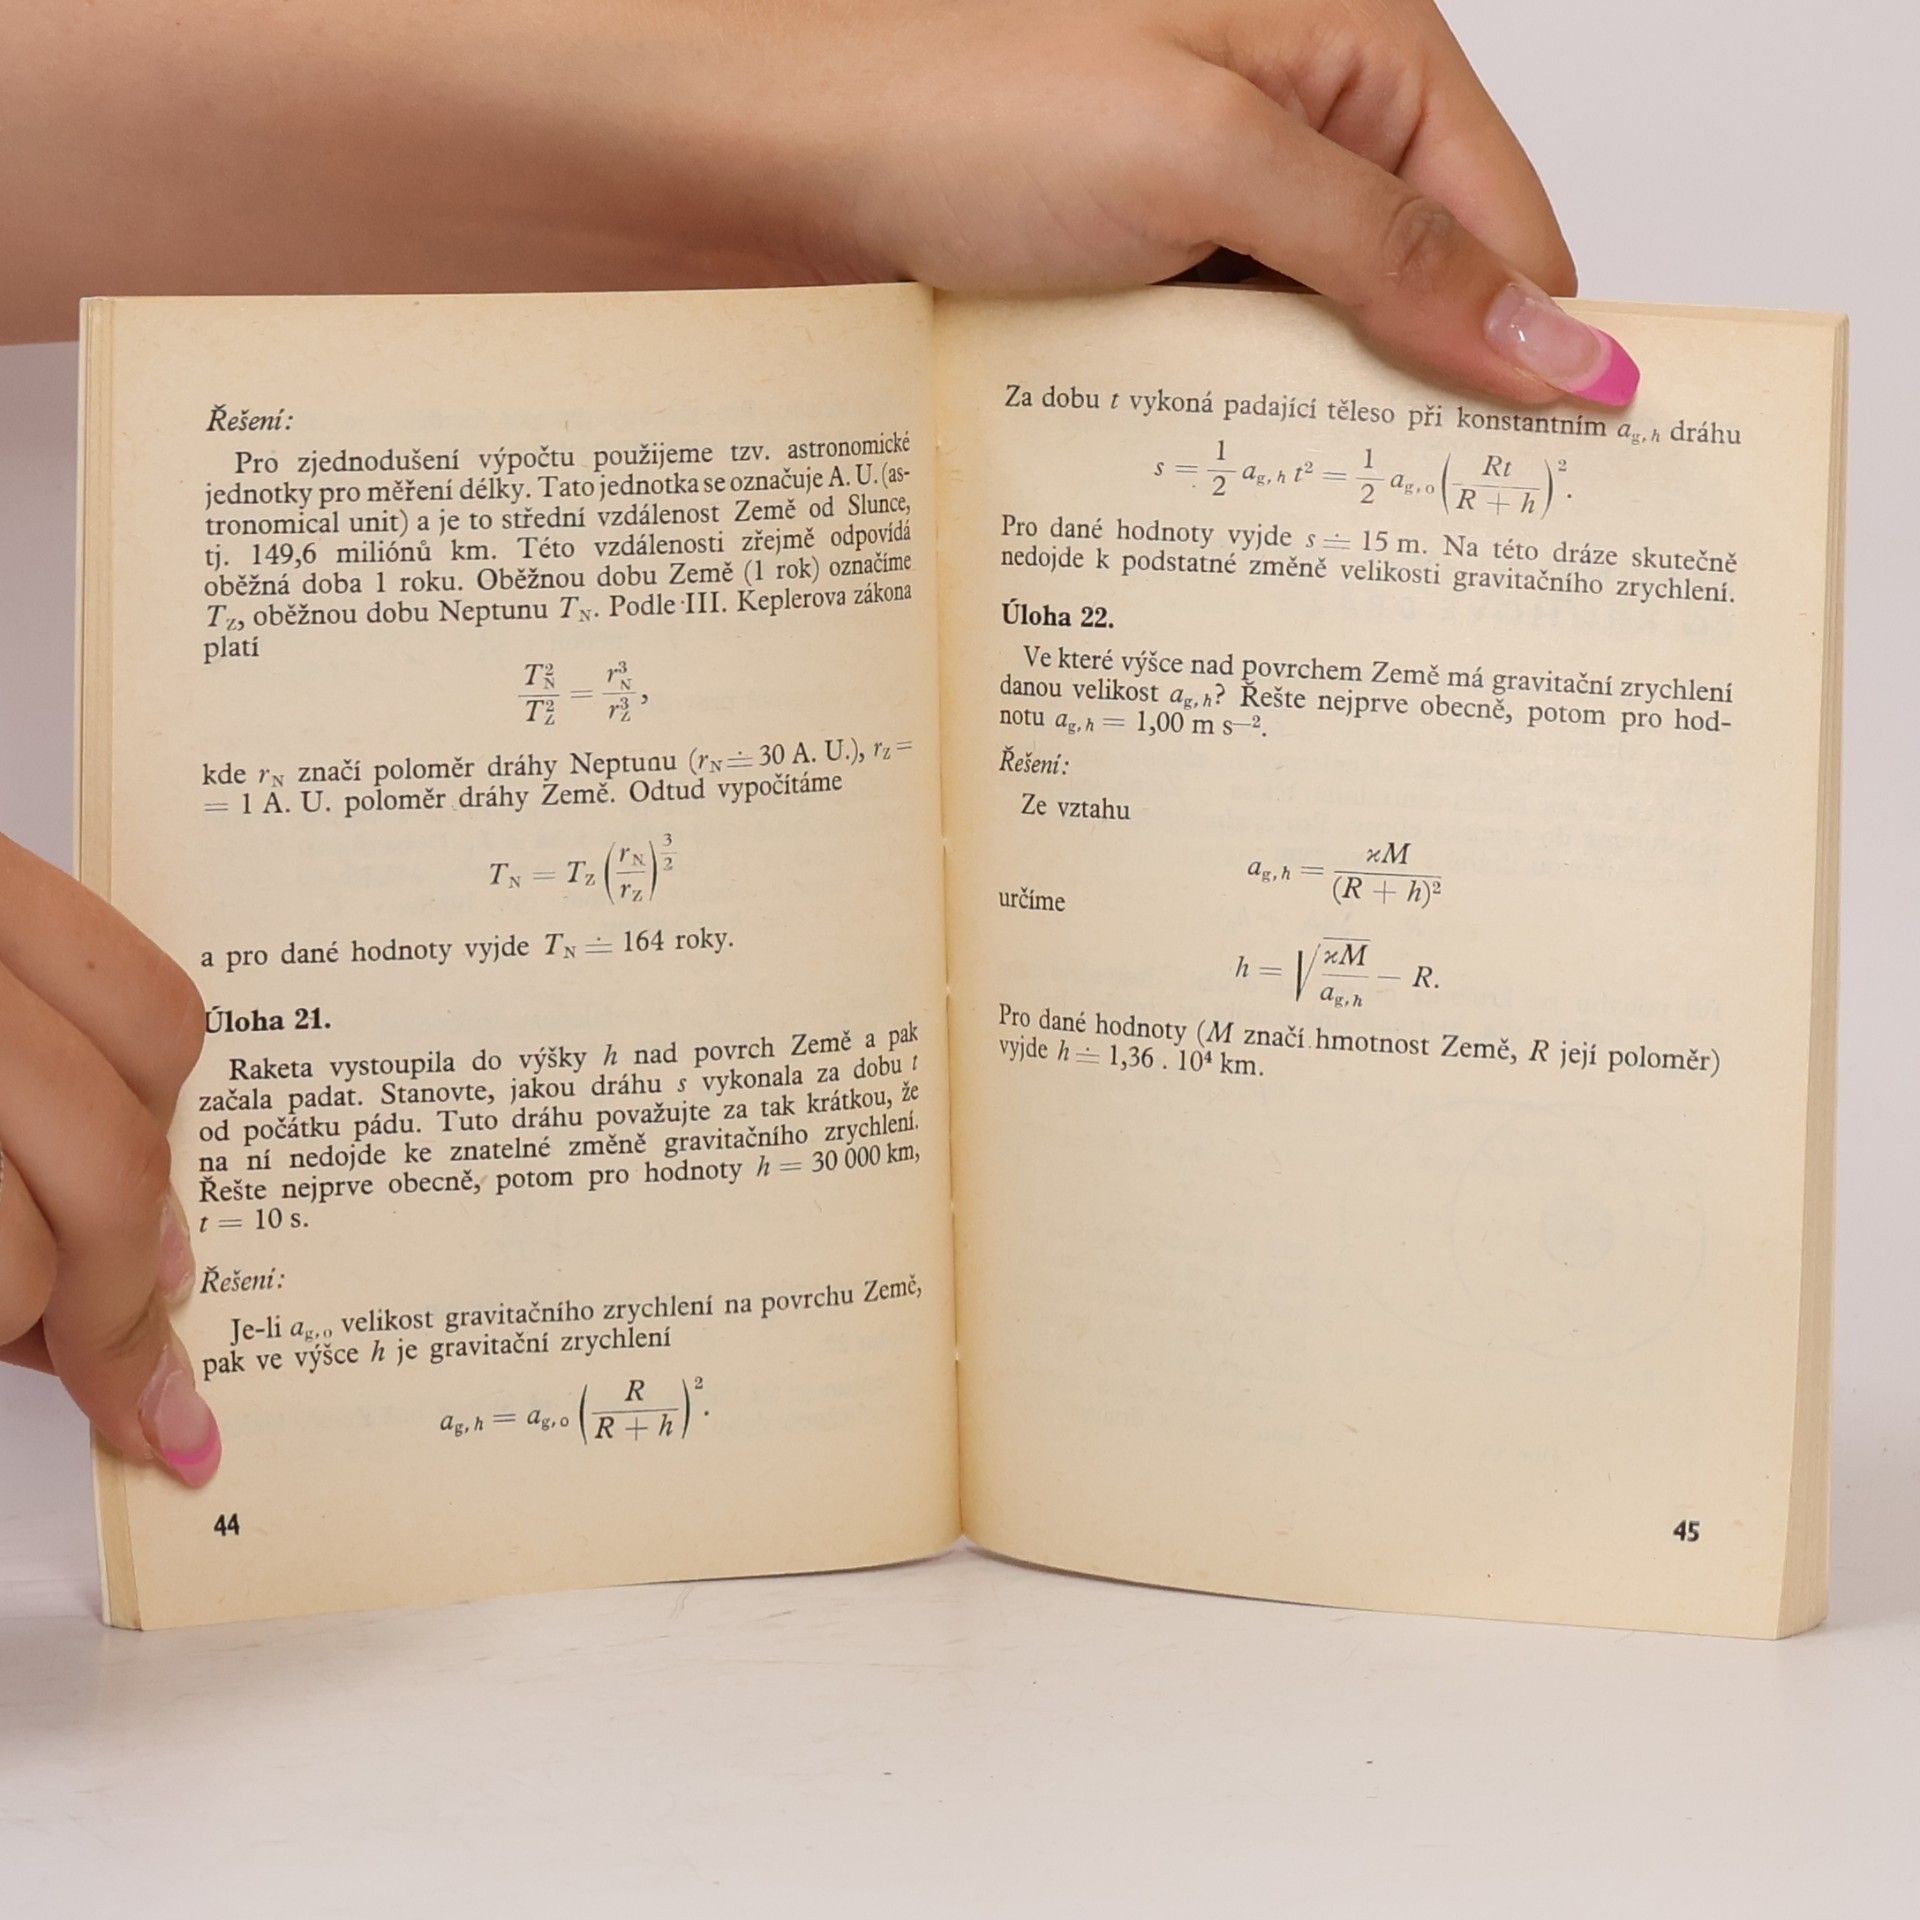 Řešení:
Pro zjednodušení výpočtu použijeme tzv. astronomické
jednotky pro měření délky. Tato jednotka se označuje A. U. (as-
tronomical unit) a je to střední vzdálenost Země od Slunce,
tj. 149,6 miliónů km. Této vzdálenosti zřejmě odpovídá
oběžná doba 1 roku. Oběžnou dobu Země (1 rok) označíme
T_Z, oběžnou dobu Neptunu T_N. Podle III. Keplerova zákona
platí
T_N^2 / T_Z^2 = r_N^3 / r_Z^3,
kde r_N značí poloměr dráhy Neptunu (r_N ≐ 30 A. U.), r_Z =
= 1 A. U. poloměr dráhy Země. Odtud vypočítáme
T_N = T_Z (r_N / r_Z)^(3/2)
a pro dané hodnoty vyjde T_N ≐ 164 roky.
Úloha 21.
Raketa vystoupila do výšky h nad povrch Země a pak
začala padat. Stanovte, jakou dráhu s vykonala za dobu t
od počátku pádu. Tuto dráhu považujte za tak krátkou, že
na ní nedojde ke znatelné změně gravitačního zrychlení.
Řešte nejprve obecně, potom pro hodnoty h = 30 000 km,
t = 10 s.
Řešení:
Je-li a_g,o velikost gravitačního zrychlení na povrchu Země,
pak ve výšce h je gravitační zrychlení
a_g,h = a_g,o (R / (R + h))^2.
44
Za dobu t vykoná padající těleso při konstantním a_g,h dráhu
s = 1/2 a_g,h t^2 = 1/2 a_g,o (Rt / (R + h))^2.
Pro dané hodnoty vyjde s ≐ 15 m. Na této dráze skutečně
nedojde k podstatné změně velikosti gravitačního zrychlení.
Úloha 22.
Ve které výšce nad povrchem Země má gravitační zrychlení
danou velikost a_g,h? Řešte nejprve obecně, potom pro hod-
notu a_g,h = 1,00 m s^—2.
Řešení:
Ze vztahu
a_g,h = ϰM / (R + h)^2
určíme
h = √(ϰM / a_g,h) − R.
Pro dané hodnoty (M značí hmotnost Země, R její poloměr)
vyjde h ≐ 1,36 . 10^4 km.
45